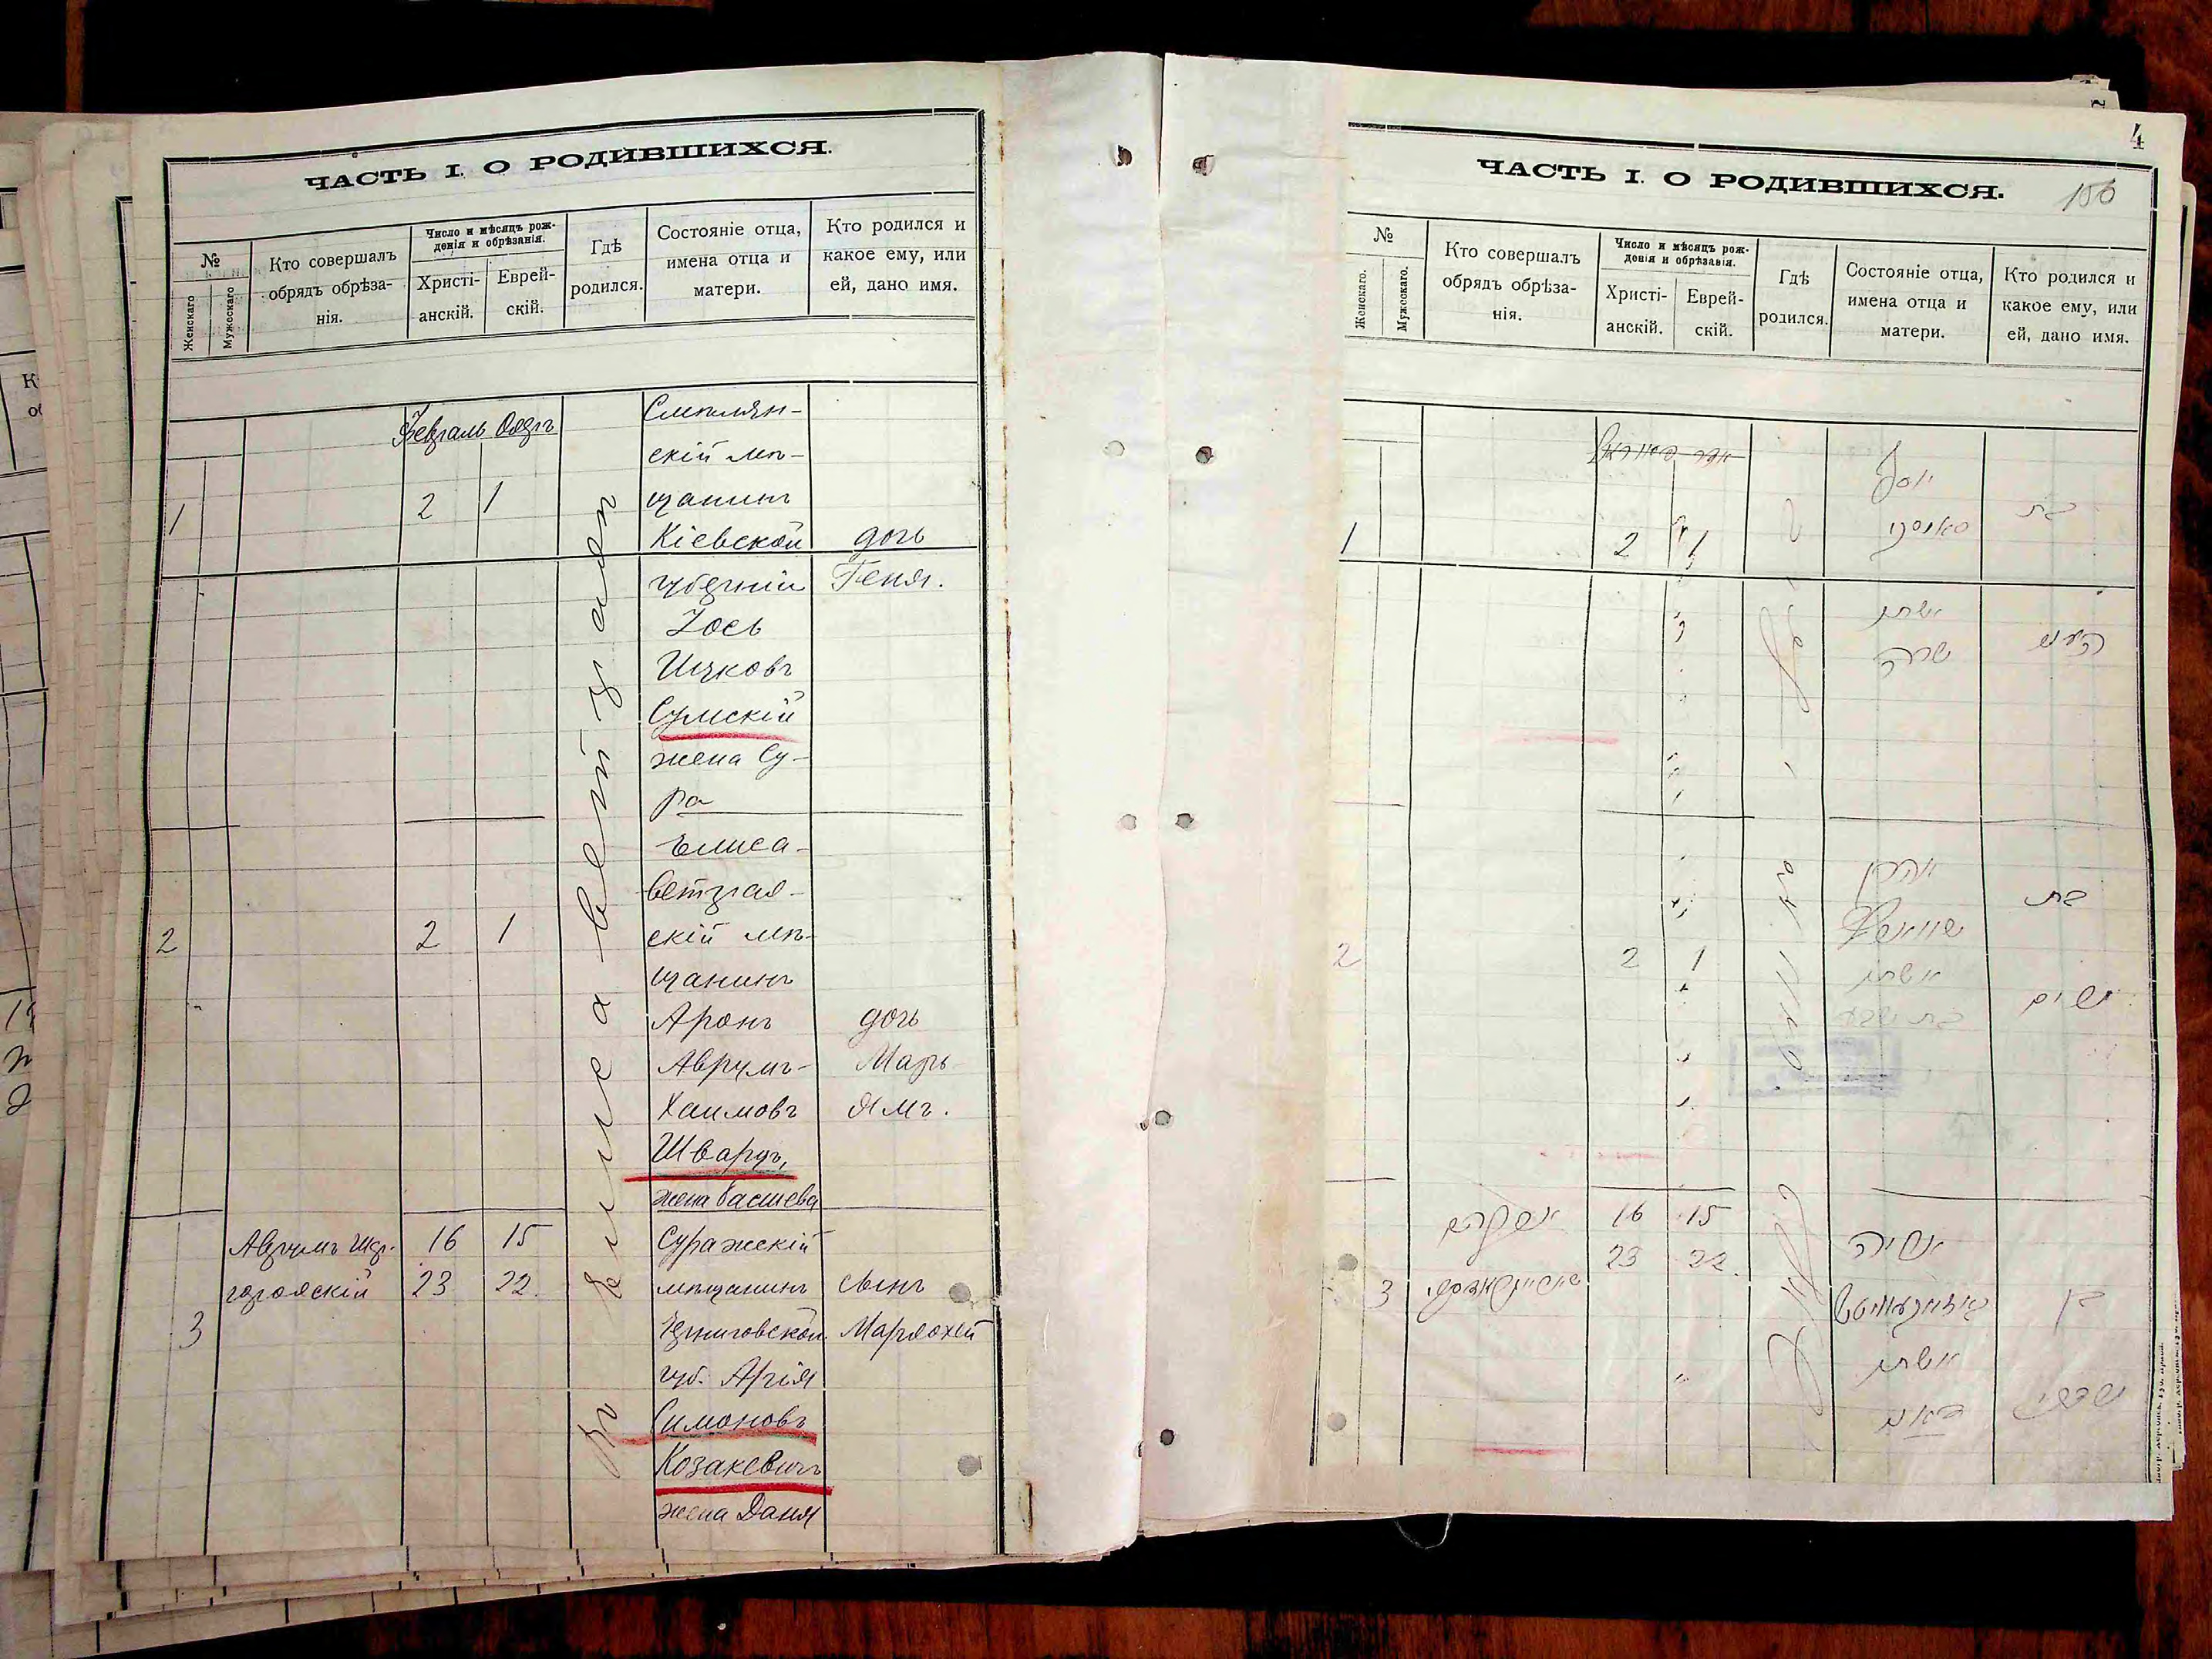 ЧАСТЬ I. О РОДИВШИХСЯ.
№
Женскаго
Мужескаго
Кто совершалъ
обрядъ обрѣза-
нія.
Число и мѣсяцъ рож-
денія и обрѣзанія.
Христі-
анскій.
Еврей-
скій.
Гдѣ
родился.
Состояніе отца,
имена отца и
матери.
Кто родился и
какое ему, или
ей, дано имя.
Февраль Одръ
1
2 1
Смѣлян-
скій мѣ-
щанинъ
Кіевской
губерніи
Іось
Ицковъ
Сумскій
жена Су-
ра
дочь
Геня.
въ Елисаветградѣ
2
2 1
Елиса-
ветград-
скій мѣ-
щанинъ
Аронъ
Аврумъ-
Хаимовъ
Шварцъ,
жена Басшева
дочь
Марь
ямъ.
3
Аврумъ Шар-
городскій
16 15
23 22
Суражскій
мѣщанинъ
Черниговской
губ. Арія
Симоновъ
Козакевичъ
жена Даня
сынъ
Мардохей
4
150
ЧАСТЬ I. О РОДИВШИХСЯ.
№
Женскаго.
Мужескаго.
Кто совершалъ
обрядъ обрѣза-
нія.
Число и мѣсяцъ рож-
денія и обрѣзанія.
Христі-
анскій.
Еврей-
скій.
Гдѣ
родился.
Состояніе отца,
имена отца и
матери.
Кто родился и
какое ему, или
ей, дано имя.
1
2 1
יוסף
סאומסקי
אשתו
שרה
בת
העניא
2
2 1
אהרן
שווארץ
אשתו
בת שבע
בת
מרים
3
אברהם
16 15
23 22
אריה
קאזאקעוויטש
אשתו
בן
מרדכי